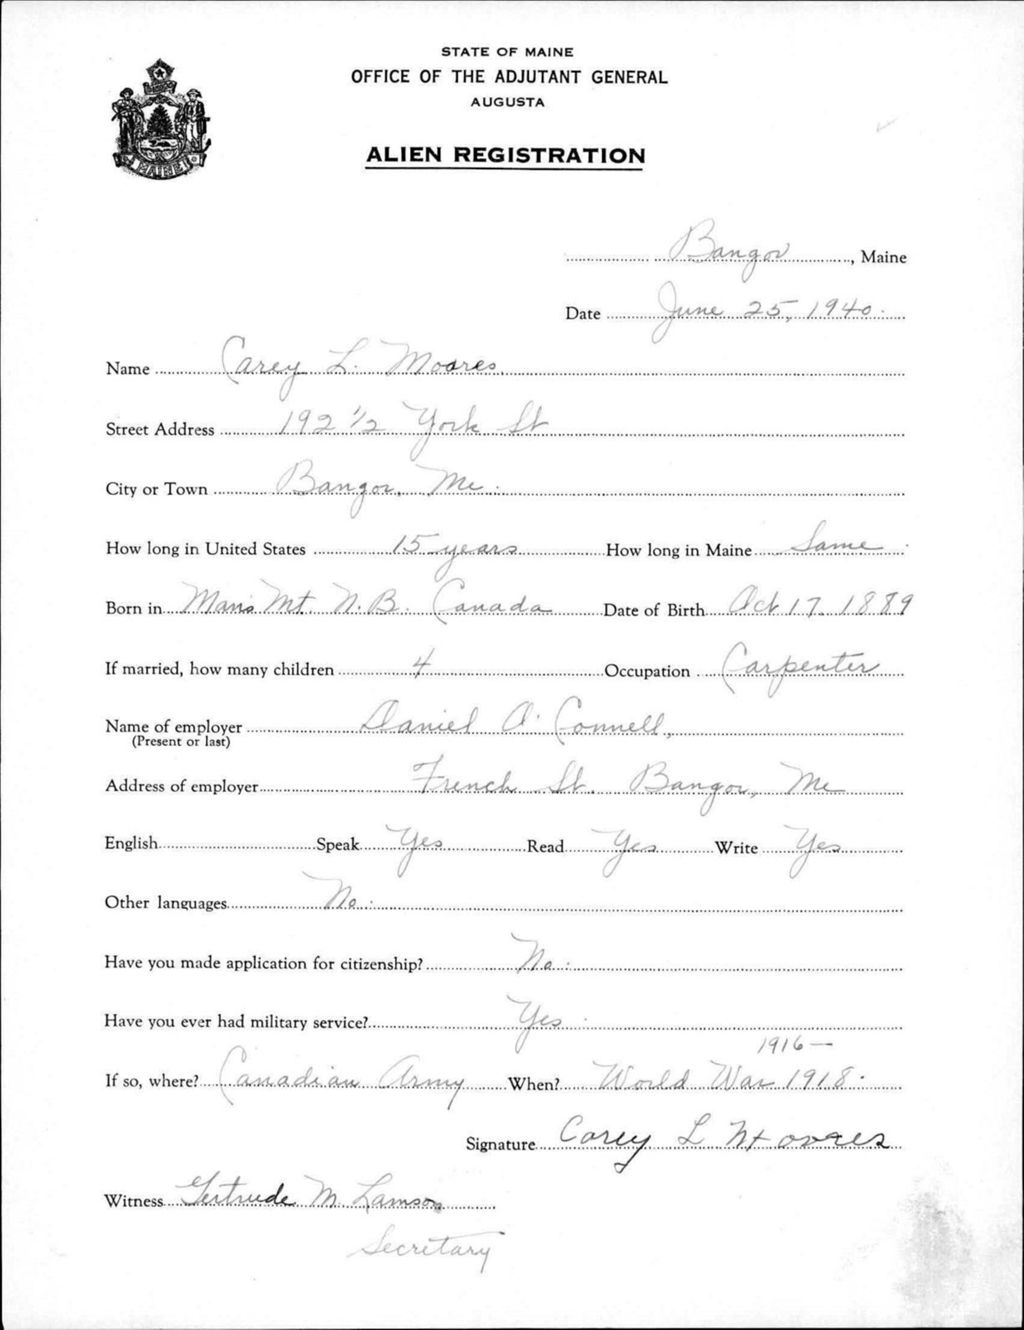 STATE OF MAINE
OFFICE OF THE ADJUTANT GENERAL
AUGUSTA
ALIEN REGISTRATION
MAINE
Bangor, Maine
Date June 25, 1940.
Name Carey L. Moores.
Street Address 192 1/2 York St
City or Town Bangor, Me.
How long in United States 15 years How long in Maine Same
Born in Mt. N.B. Canada Date of Birth Oct 17, 1889
If married, how many children 4 Occupation Carpenter
Name of employer Daniel O'Connell,
(Present or last)
Address of employer French St. Bangor, Me
English Speak Yes Read Yes Write Yes
Other languages No.
Have you made application for citizenship? No.
Have you ever had military service? Yes.
1916—
If so, where? Canadian Army When? World War 1918.
Signature Carey L Moores
Witness Gertrude M. Lamson
Secretary